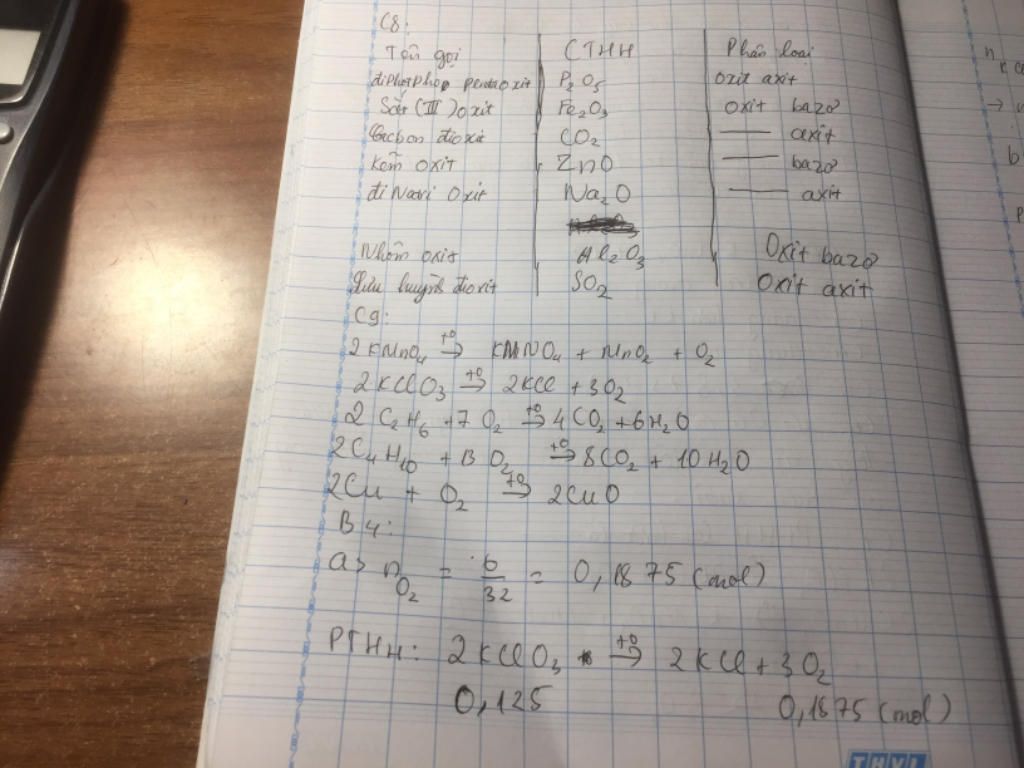 C8:
Tên gọi CTHH Phân loại
điphotpho pentaoxit P₂O₅ oxit axit
Sắt (III) oxit Fe₂O₃ oxit bazơ
Cacbon đioxit CO₂ —— axit
Kẽm oxit ZnO —— bazơ
đi Natri oxit Na₂O —— axit
Nhôm oxit Al₂O₃ Oxit bazơ
Lưu huỳnh đioxit SO₂ Oxit axit
C9:
2KMnO₄ →(t°) KMNO₄ + MnO₂ + O₂
2KClO₃ →(t°) 2KCl + 3O₂
2C₂H₆ + 7O₂ →(t°) 4CO₂ + 6H₂O
2C₄H₁₀ + 13O₂ →(t°) 8CO₂ + 10H₂O
2Cu + O₂ →(t°) 2CuO
B4:
a> n O₂ = 6/32 = 0,1875 (mol)
PTHH: 2KClO₃ →(t°) 2KCl + 3O₂
0,125 0,1875 (mol)